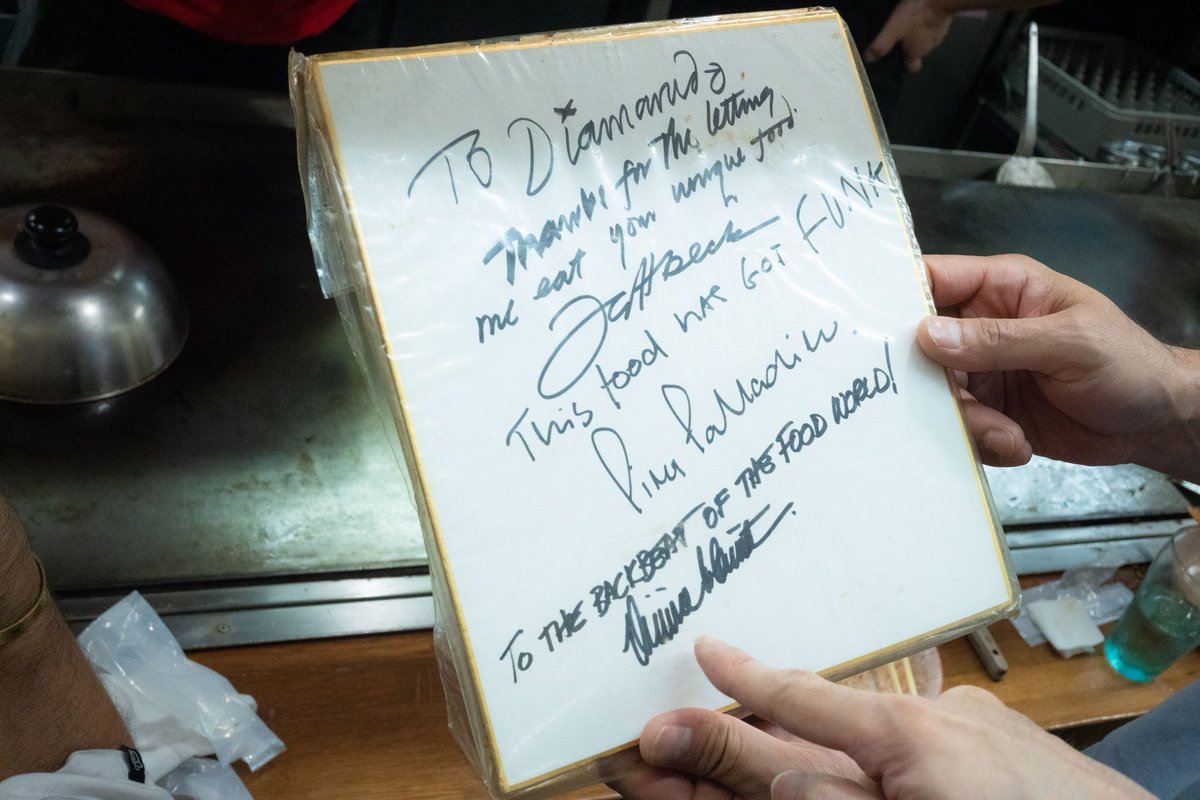 TO Diamarudo
Thanks for the letting
me eat your unique food.
Jeff Beck
This food has GOT FUNK
Pino Palladino.
TO THE BACKBEAT OF THE FOOD WORLD!